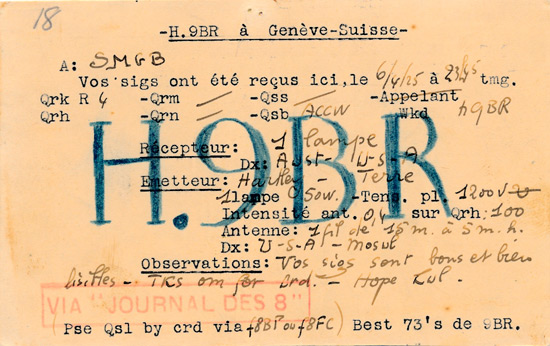 18
-H.9BR à Genève-Suisse-
A: SMGB
Vos sigs ont été reçus ici, le 6/4/25 à 2345 tmg.
Qrk R 4 -Qrm — -Qss — -Appelant
Qrh -Qrn — -Qsb ACCW Wkd h9BR
H.9BR
Récepteur: 1 lampe
Dx: Aust- U-S-A
Emetteur: Hartley - Terre
1lampe 50w. -Tens. pl. 1200v
Intensité ant. 0,4 sur Qrh: 100
Antenne: 1 fil de 15 m. à 5 m. h.
Dx: U-S-A - Mosul
Observations: Vos sigs sont bons et bien
lisibles - TKS om for crd. - Hope
VIA "JOURNAL DES 8"
Pse Qsl by crd via f8BP ou f8FC) Best 73's de 9BR.